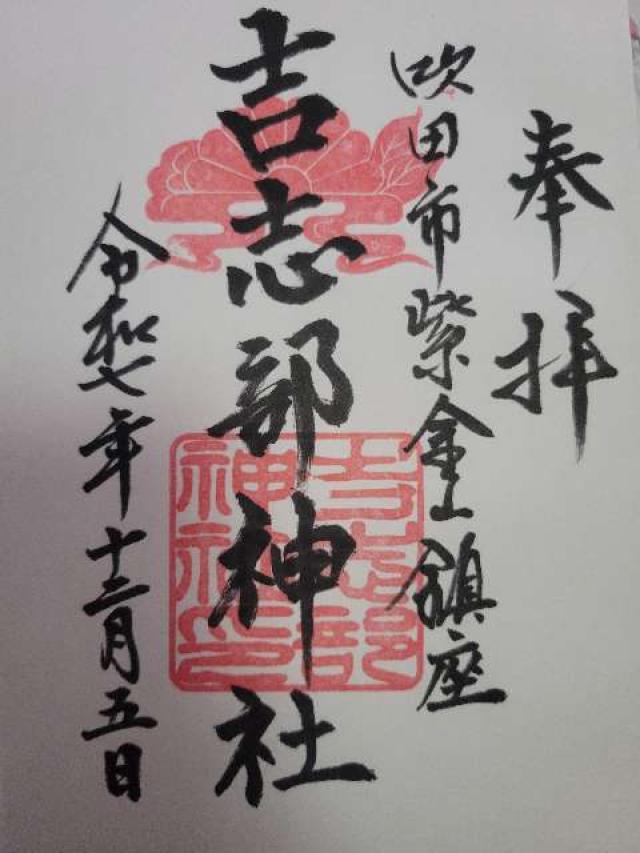 奉拝
吹田市紫金山鎮座
吉志部神社
吉志部
神社印
令和七年十二月五日